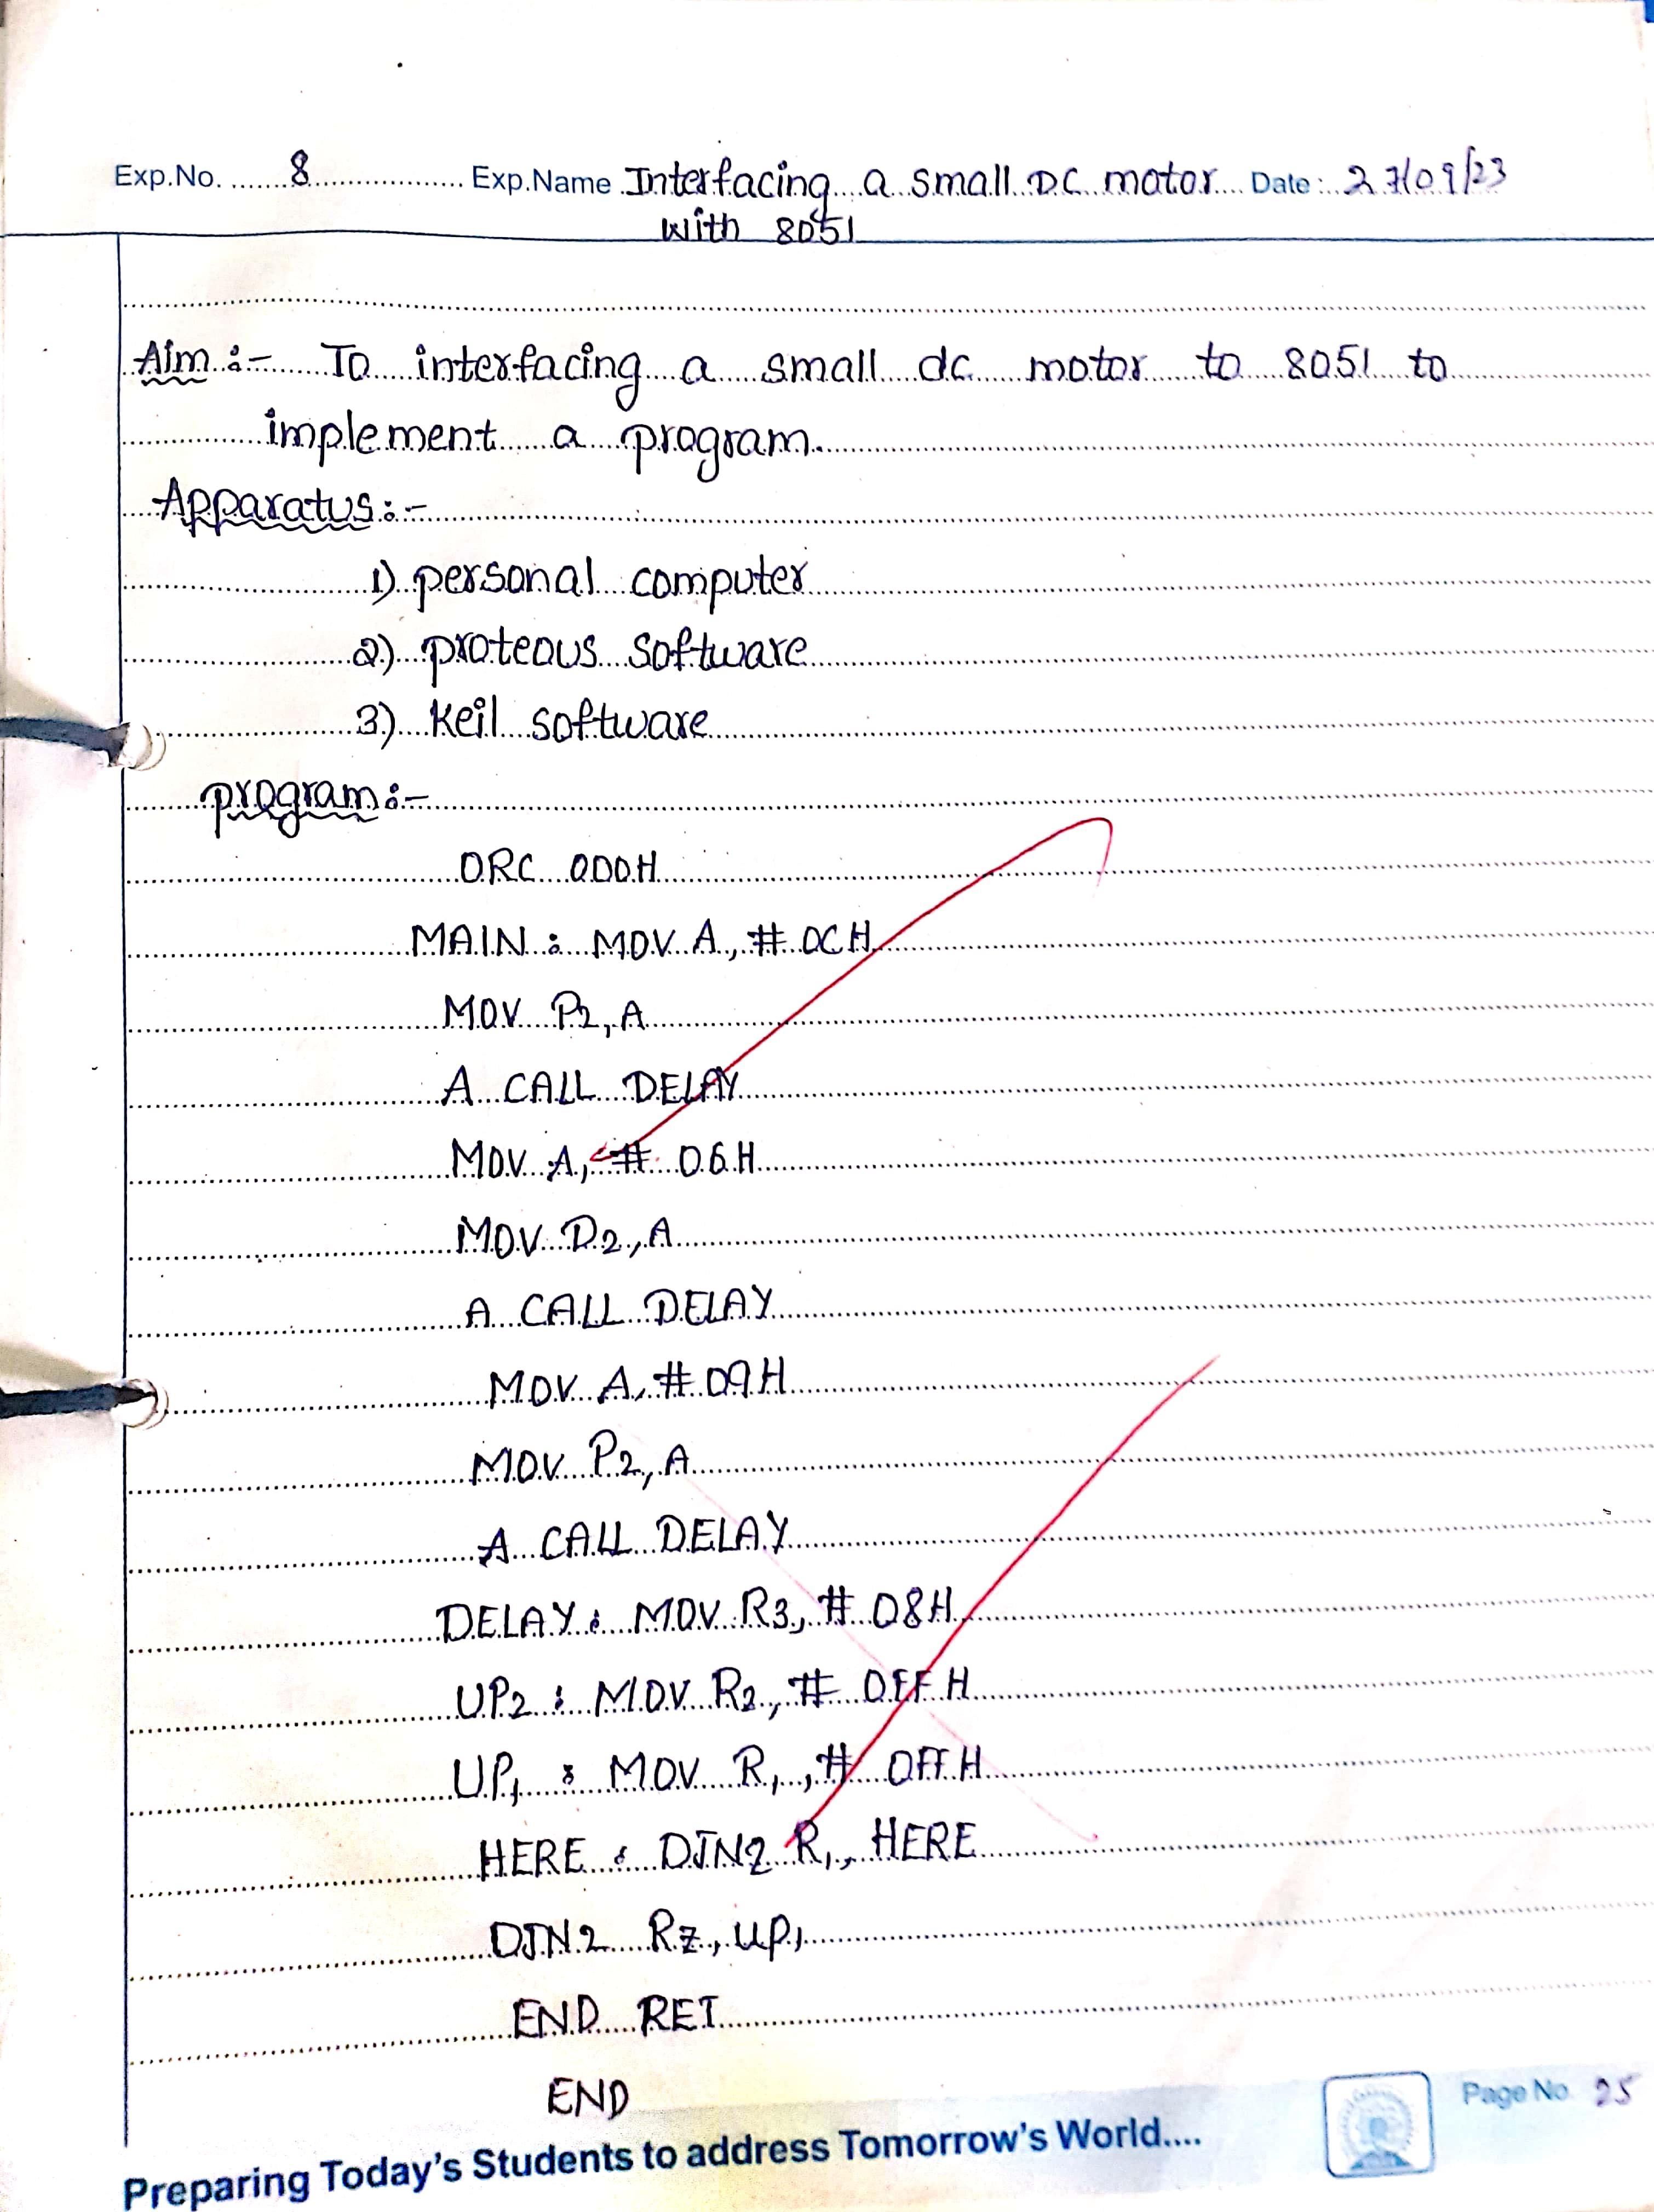 Exp.No. 8 Exp.Name Interfacing a small DC motor Date: 27/09/23
with 8051
Aim :- To interfacing a small dc motor to 8051 to
implement a program.
Apparatus :-
1) personal computer
2) proteous software
3) keil software
program :-
ORC 000H
MAIN : MOV A, # 0CH
MOV P2, A
A CALL DELAY
MOV A, # 06H
MOV D2, A
A CALL DELAY
MOV A, # 09H
MOV P2, A
A CALL DELAY
DELAY : MOV R3, # 08H
UP2 : MOV R2, # 0FFH
UP1 : MOV R1, # 0FFH
HERE : DJN2 R1, HERE
DJN2 R2, UP1
END RET
END
Page No 25
Preparing Today's Students to address Tomorrow's World....